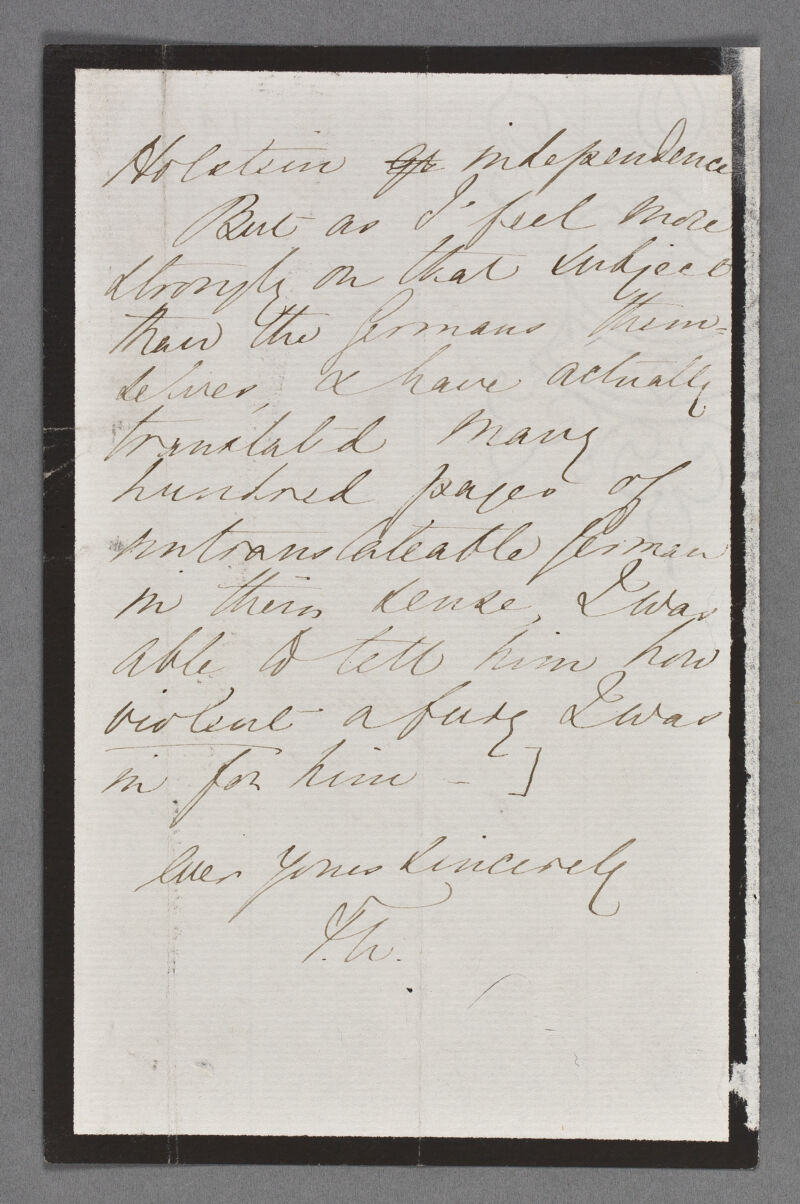 Holstein independence
But as I feel more
strongly on that subject
than the Germans them-
selves, & have actually
translated many
hundred pages of
untranslateable German
in their sense, I was
able to tell him how
violent a fury I was
in for him — ]
Ever yours sincerely